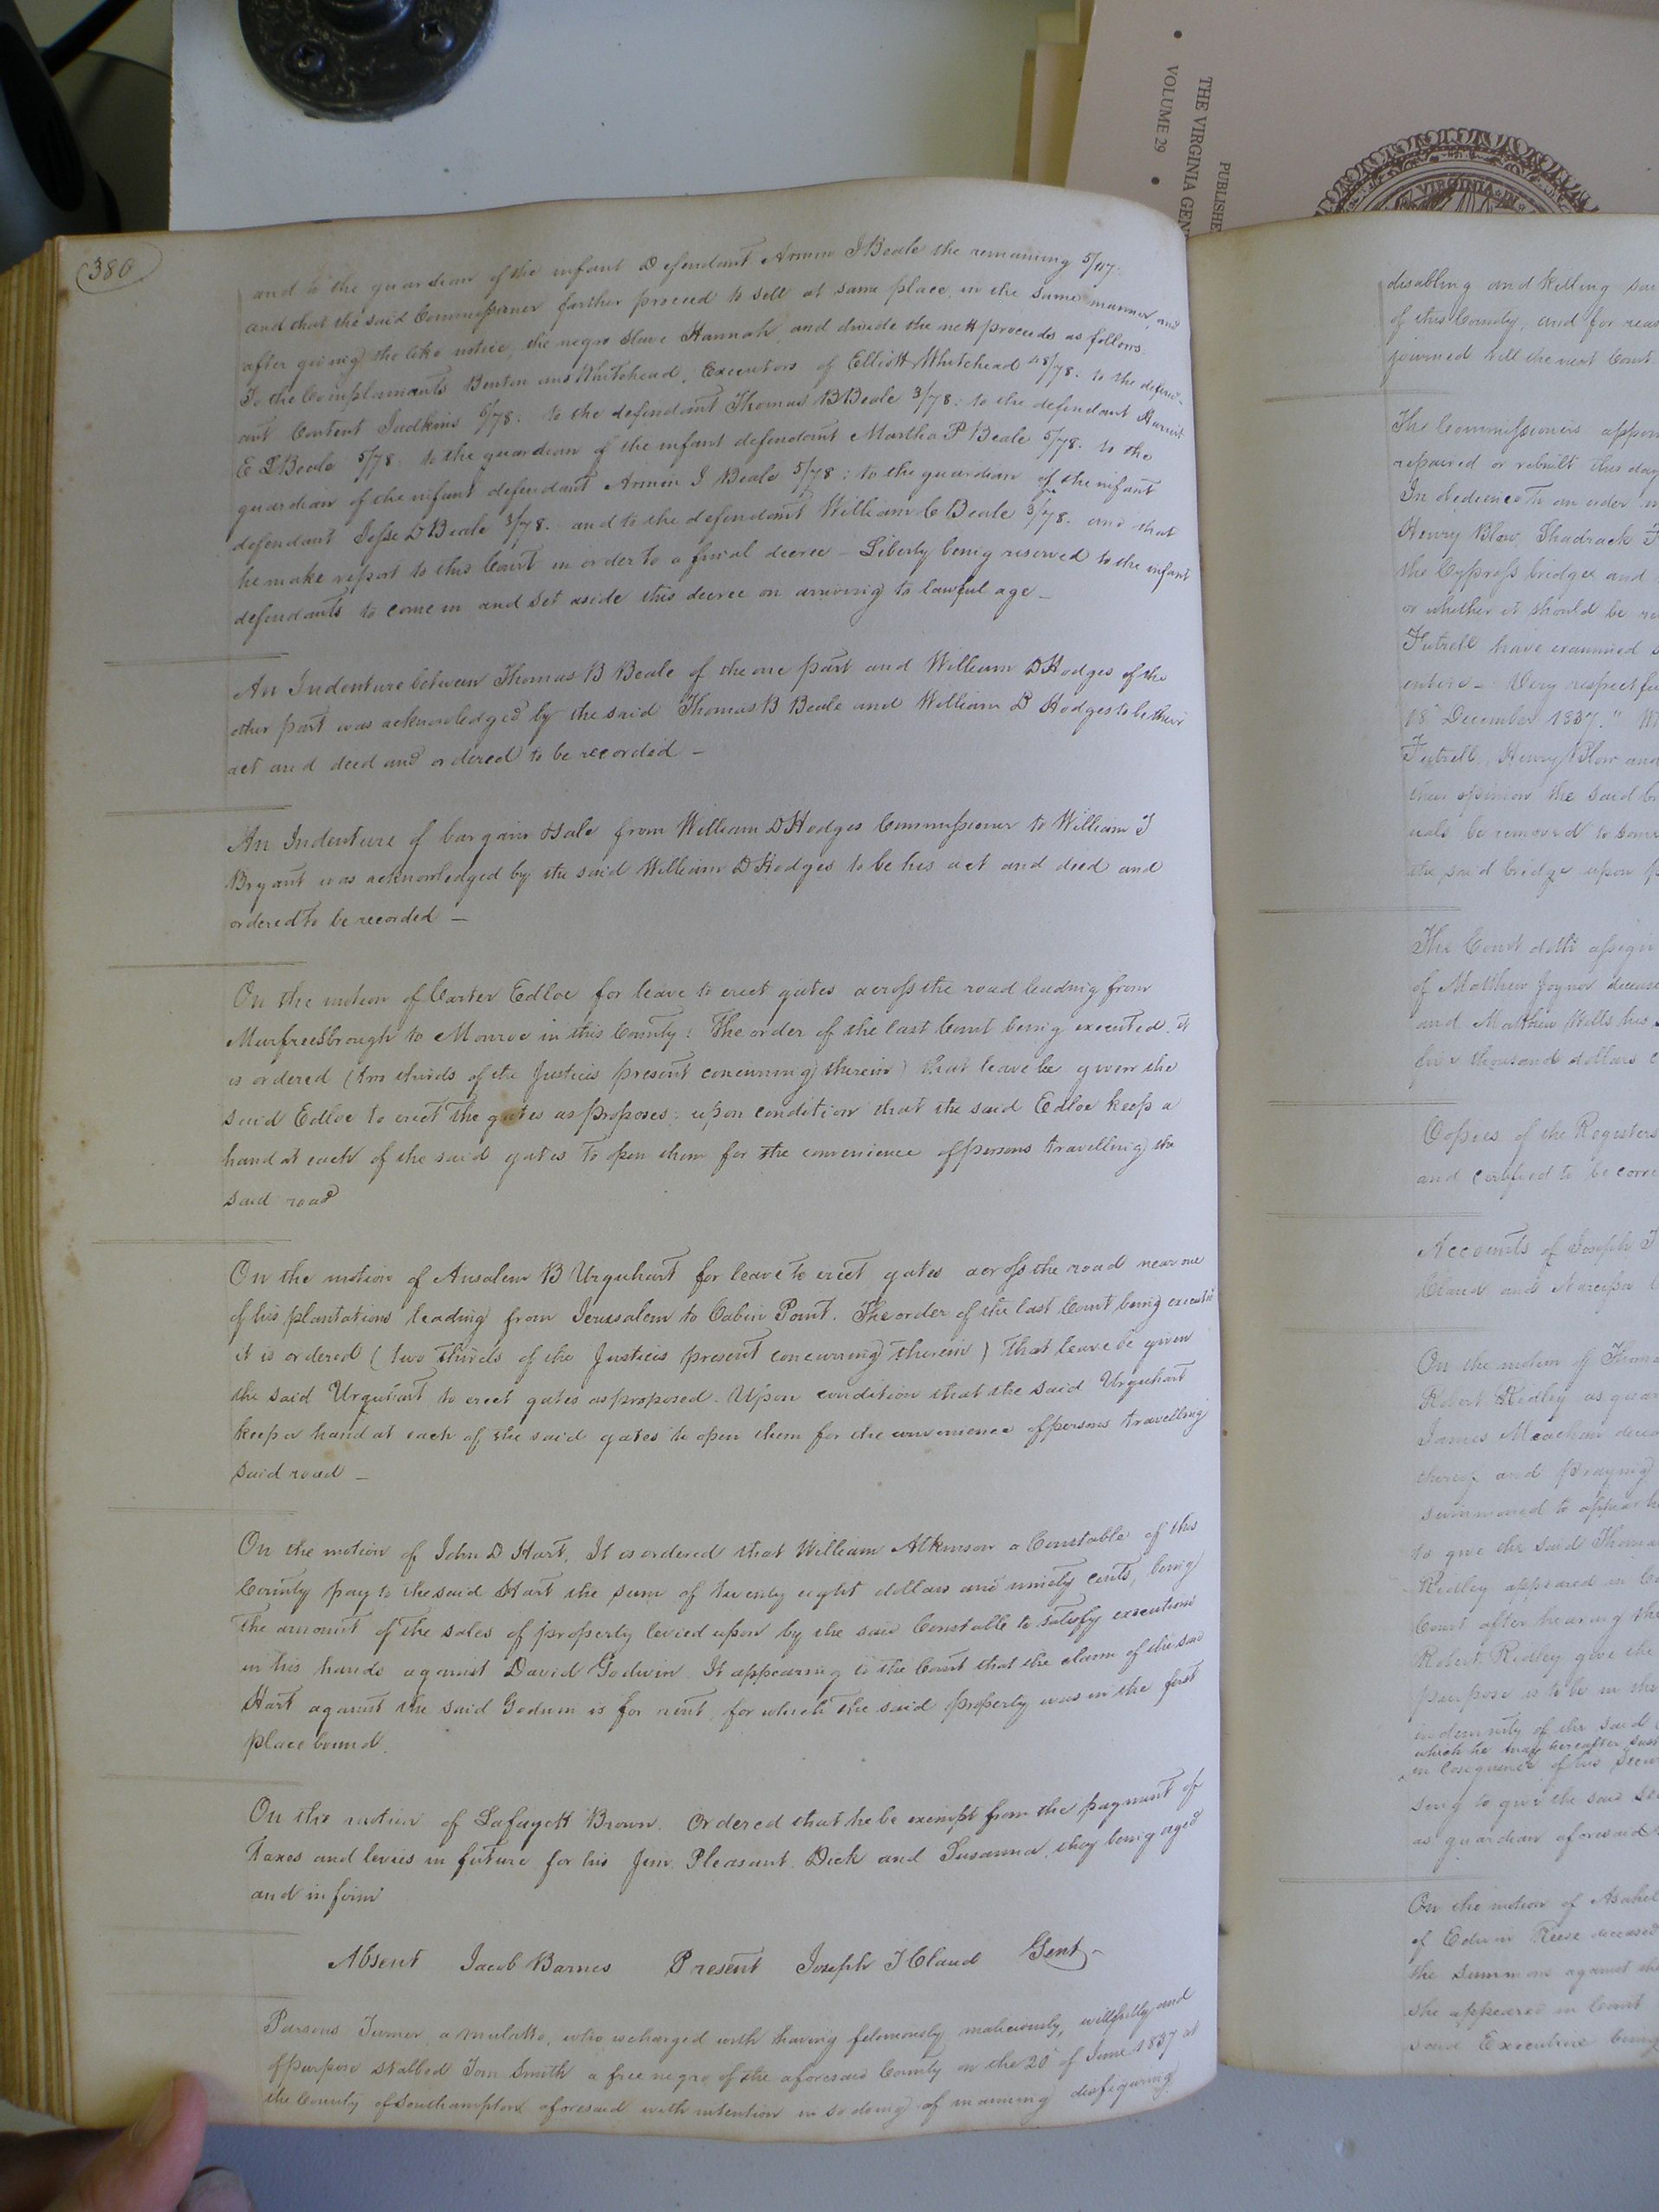 PUBLISHE
THE VIRGINIA GEN
VOLUME 29
VIRGINIA
380
and to the guardian of the infant Defendant Armin J Beale the remaining 5/117:
and that the said Commissioner further proceed to sell at same place, in the same manner, and
after giving the like notice, the negro Slave Hannah, and divide the nett proceeds as follows.
To the Complainants Benton and Whitehead, Executors of Elliott Whitehead 48/78: to the defend-
ant Content Judkins 6/78: to the defendant Thomas B Beale 3/78: to the defendant Harriet
E L Beale 5/78. to the guardian of the infant defendant Martha P Beale 5/78. to the
guardian of the infant defendant Armin J Beale 5/78: to the guardian of the infant
defendant Jesse D Beale 3/78. and to the defendant William C Beale 3/78. and that
he make report to this Court in order to a final decree – Liberty being reserved to the infant
defendants to come in and set aside this decree on arriving to lawful age –
An Indenture between Thomas B Beale of the one part and William D Hodges of the
other part was acknowledged by the said Thomas B Beale and William D Hodges to be their
act and deed and ordered to be recorded –
An Indenture of bargain & sale from William D Hodges Commissioner to William J
Bryant was acknowledged by the said William D Hodges to be his act and deed and
ordered to be recorded –
On the motion of Carter Edloe for leave to erect gates across the road leading from
Murfreesbrough to Monroe in this County: The order of the last Court being executed, it
is ordered (two thirds of the Justices present concurring therein) that leave be given the
said Edloe to erect the gates as proposes: upon condition that the said Edloe keep a
hand at each of the said gates to open them for the convenience of persons travelling the
said road
On the motion of Ansalem B Urquhart for leave to erect gates across the road near one
of his plantations leading from Jerusalem to Cabin Point. The order of the last Court being executed
it is ordered (two thirds of the Justices present concurring therein) that leave be given
the said Urquhart to erect gates as proposed. Upon condition that the said Urquhart
keep a hand at each of the said gates to open them for the convenience of persons travelling
said road –
On the motion of John D Hart, It is ordered that William Atkinson a Constable of this
County pay to the said Hart the sum of twenty eight dollars and ninety cents, being
the amount of the sales of property levied upon by the said Constable to satisfy executions
in his hands against David Godwin. It appearing to the Court that the claim of the said
Hart against the said Godwin is for rent, for which the said property was in the first
place bound.
On the motion of Lafayett Brown. Ordered that he be exempt from the payment of
Taxes and levies in future for his Jim, Pleasant, Dick and Susanna, they being aged
and infirm
Absent Jacob Barnes Present Joseph T Claud Gent
Parsons Turner a mulatto, who is charged with having feloniously maliciously, willfully and
of purpose stabbed Tom Smith a free negro of the aforesaid County on the 20 of June 1837 at
the County of Southampton aforesaid with intention in so doing of maiming disfiguring
disabling and killing
of this County, and for
journed till the next Court
The Commissioners
repaired or rebuilt this day
In obedience to an order
Henry Blow, Shadrack
the Cypress bridge and
or whether it should be
Futrell have examined
entire – Very respectfu
18 December 1837."
Futrell, Henry Blow and
their opinion the said
be removed to some
the said bridge upon
The Court doth assign
of Matthew Joyner
and Matthew Wells his
five thousand dollars
Copies of the Registers
and certified to be corre
Accounts of Joseph T
Claud and Narcissa
On the motion of Thoma
Robert Ridley as guar
James Meacham
thereof and praying
summoned to appear
to give the said Thoma
Ridley appeared in
Court after hearing the
Robert Ridley give the
purpose is to be in the
indemnity of the said
which he may hereafter
in Cosequence of his
to give the said
as guardian aforesaid
On the motion of Asahel
of Edwin Reese deceased
the summons against
she appeared in Court
said Executrix being